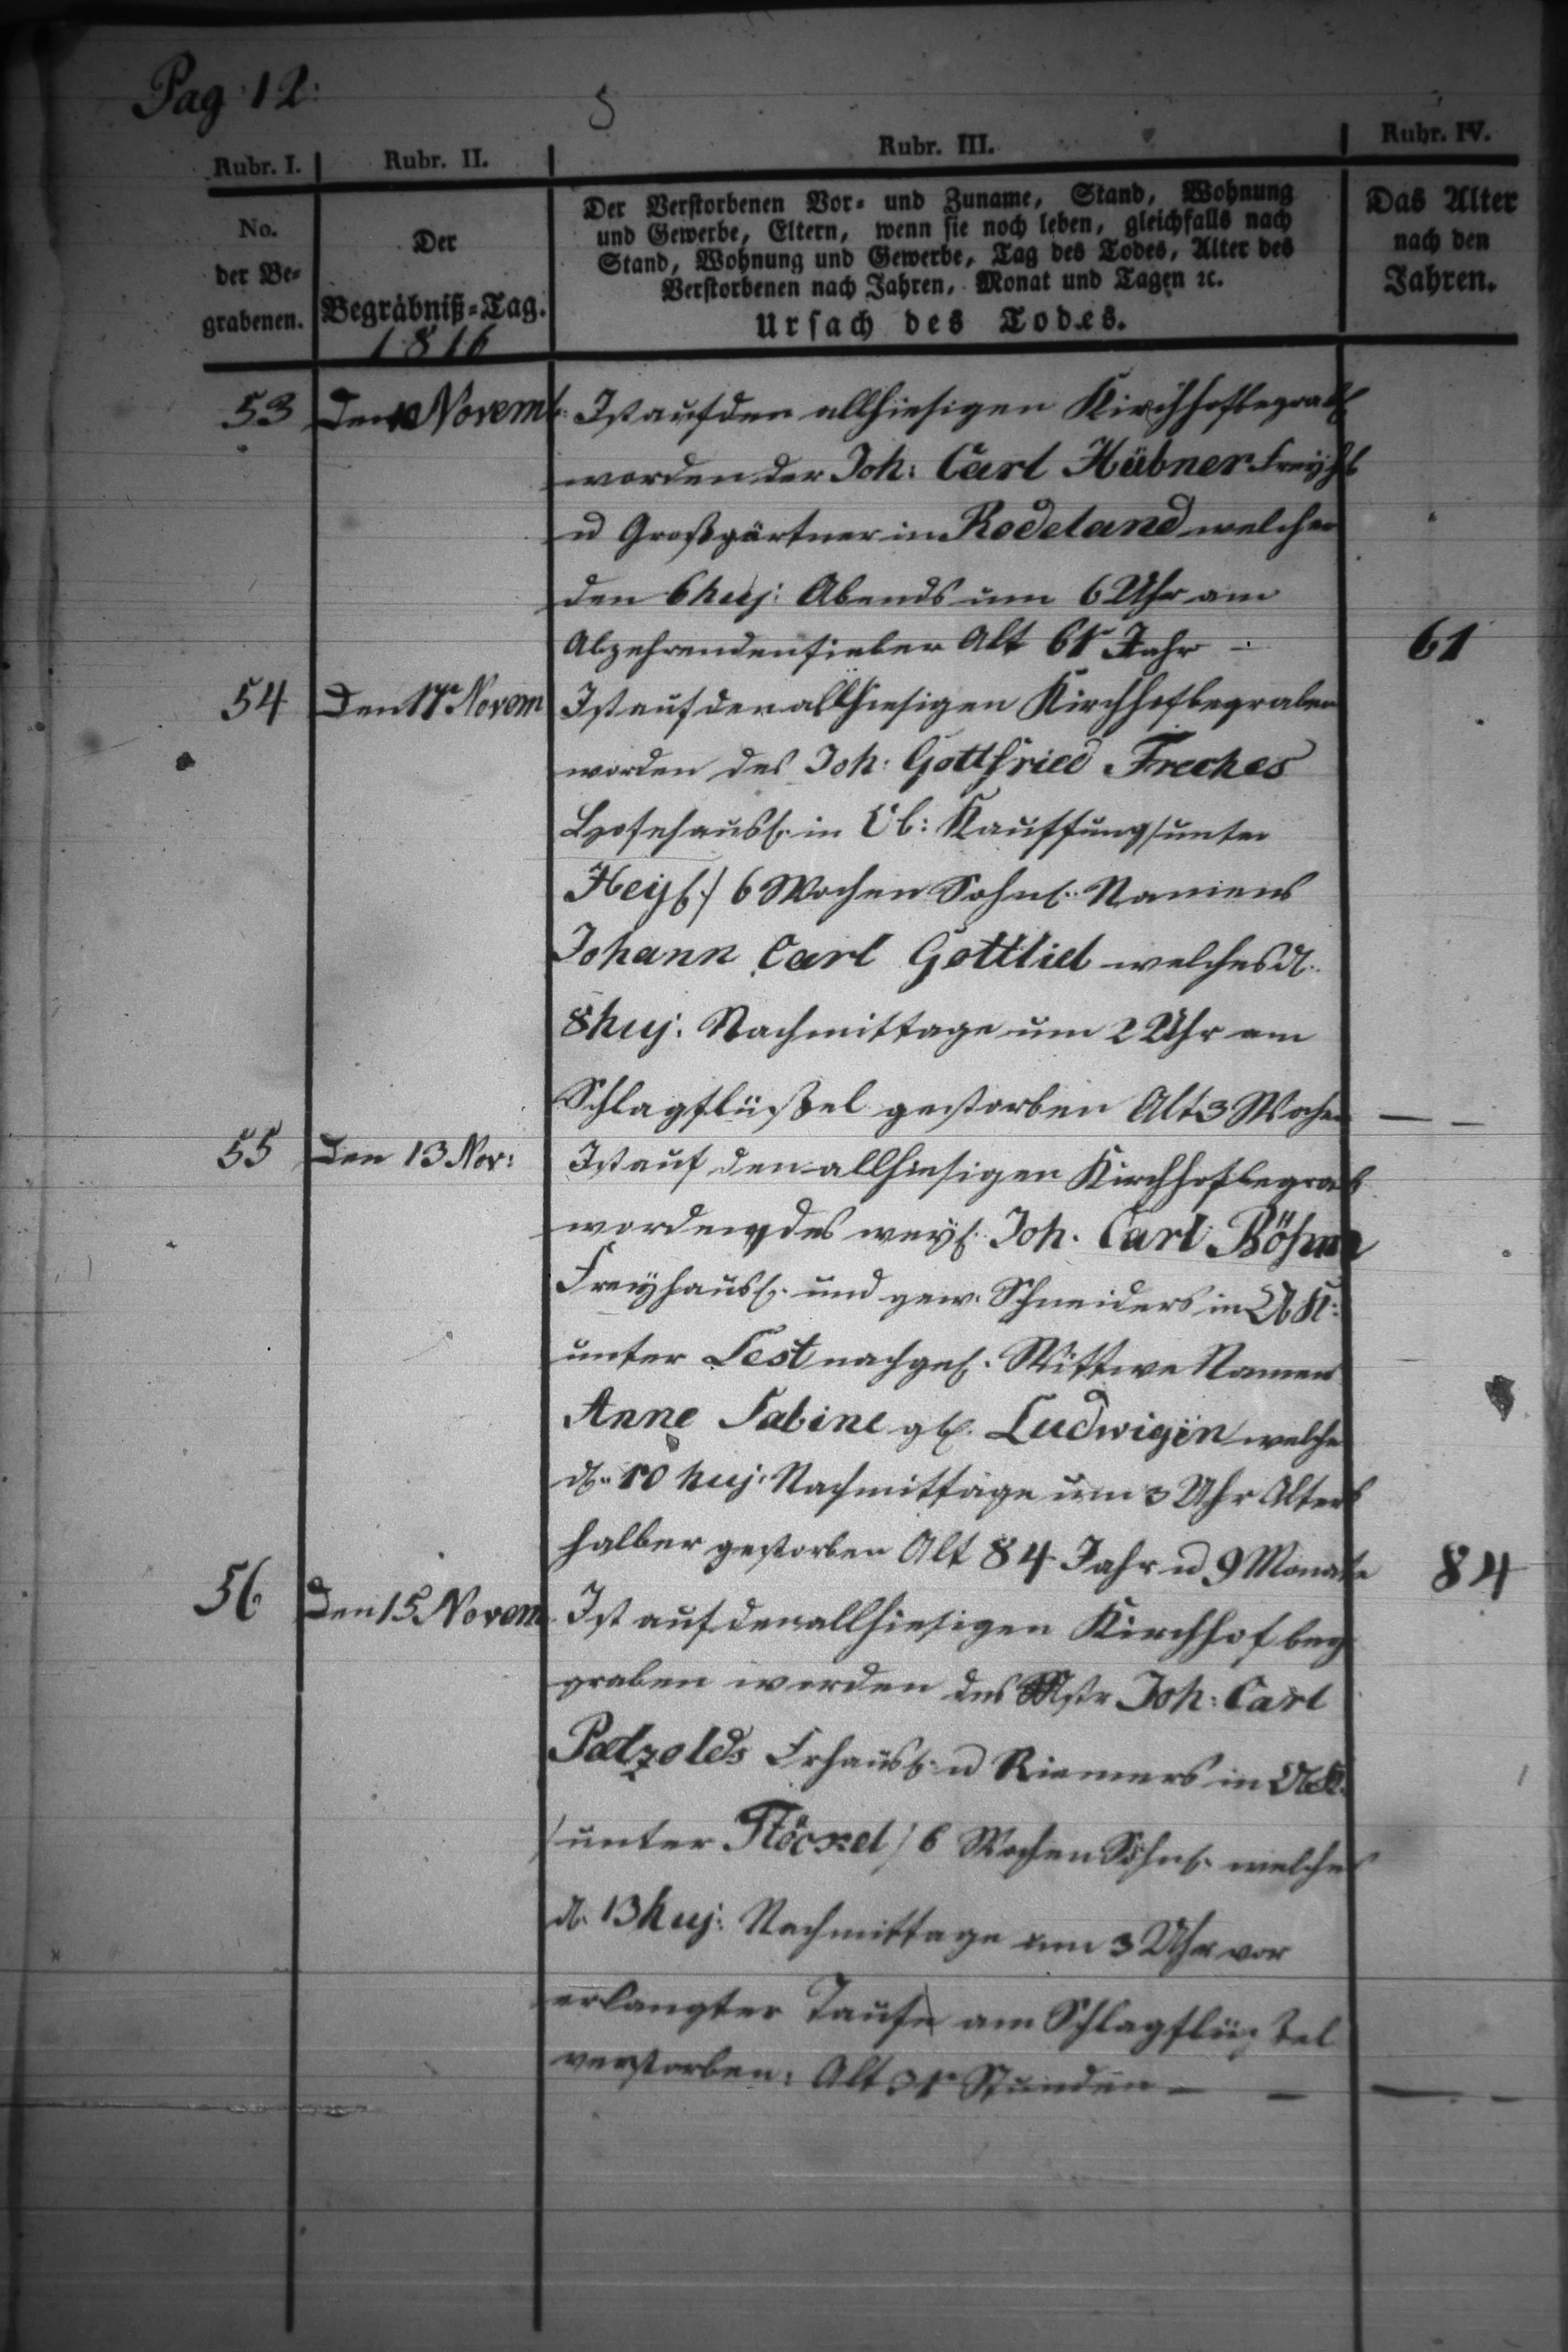 Pag: 12:
5
Rubr. I.
Rubr. II.
Rubr. III.
Rubr. IV.
No.
der Be-
grabenen.
Der
Begräbniß-Tag.
1816
Der Verstorbenen Vor- und Zuname, Stand, Wohnung
und Gewerbe, Eltern, wenn sie noch leben, gleichfalls nach
Stand, Wohnung und Gewerbe, Tag des Todes, Alter des
Verstorbenen nach Jahren, Monat und Tagen ꝛc.
Ursach des Todes.
Das Alter
nach den
Jahren.
53 Den 10 Novemb: Ist auf den allhiesigen Kirchhof begrab
worden der Joh: Carl Hübner
u Großgärtner in Rodeland welcher
den 6 huj: Abends um 6 Uhr am
Abzehrenden fieber Alt 61 Jahr 61
54 Den 11 Novem Ist auf den allhiesigen Kirchhof begraben
worden des Joh: Gottfried Freches
in Ob: Kauffung /unter
Heyl:/ 6 Wochen Sohnl. Namens
Johann Carl Gottlieb welches d.
8 huj: Nachmittage um 2 Uhr am
Schlagflüßel gestorben Alt 3 Wochen — —
55 Den 13 Nov: Ist auf den allhiesigen Kirchhof begrab
worden des weyl. Joh. Carl Böhm
Freyhausl. und gew. Schneiders in
unter Lest nachgel. Wittwe Namen
Anne Sabine gb. Ludwigin welche
d. 10 huj: Nachmittage um 3 Uhr Alters
halber gestorben Alt 84 Jahr u 9 Monate 84
56 Den 15 Novem Ist auf den allhiesigen Kirchhof beg
graben worden des Mstr Joh: Carl
Patzolds Frhausl. u Riemers in
/unter Stöckel/ 6 Wochen Söhnl. welches
d. 13 huj: Nachmittage um 3 Uhr vor
erlangter Taufe am Schlagflüßel
verstorben: Alt Stunden — — — —